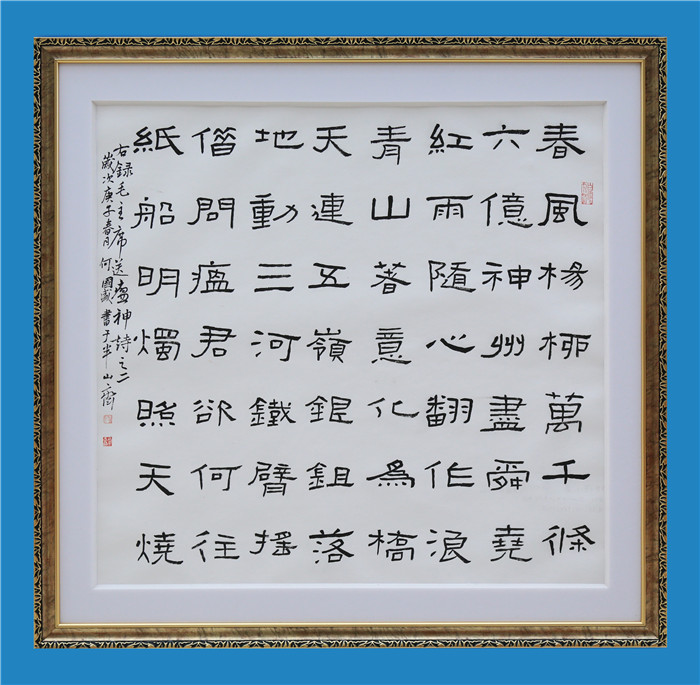 春風楊柳萬千條
六億神州盡舜堯
紅雨隨心翻作浪
青山著意化爲橋
天連五嶺銀鉏落
地動三河鐵臂搖
借問瘟君欲何往
紙船明燭照天燒
右録毛主席送瘟神詩之二
歲次庚子春月何國書于半山齋